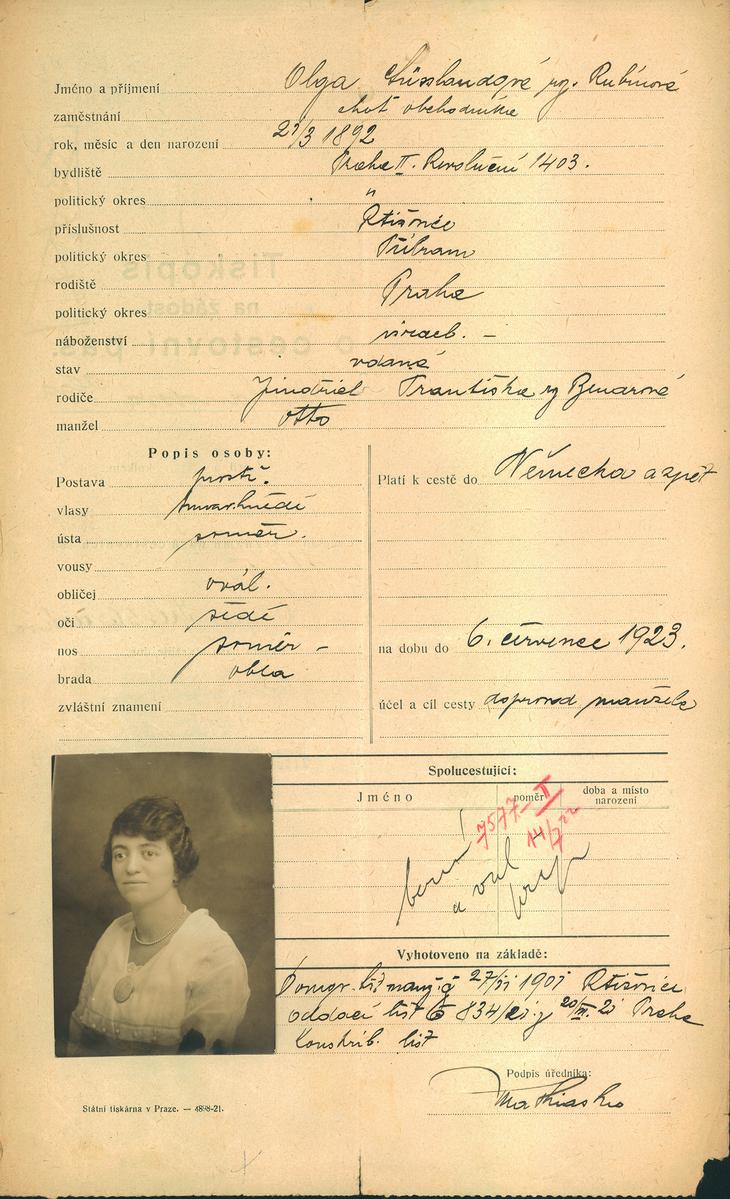 Jméno a příjmení Olga Süsslandová roz. Rubínová
zaměstnání choť obchodníka
rok, měsíc a den narození 1892
bydliště Praha II. Revoluční 1403.
politický okres "
příslušnost Rtišovice
politický okres Příbram
rodiště Praha
politický okres
náboženství israel. –
stav vdaná
rodiče Jindřich Františka
manžel Otto
Popis osoby:
Postava prostř.
vlasy tmavohnědé
ústa souměr.
vousy
obličej ovál.
oči šedé
nos souměr –
brada oblá
zvláštní znamení
Platí k cestě do Německa a zpět
na dobu do 6. července 1923.
účel a cíl cesty doprovod manžela
Spolucestující:
Jméno poměr doba a místo narození
7577-II
14/7 22
a
Vyhotoveno na základě:
Domov. list 27/ 1901 Rtišovice
oddací list 834/21 20/ 21 Praha
Konskrib. list
Podpis úředníka:
Státní tiskárna v Praze. — 4898-21.
Tiskopis
na žádost
o cestovní pas.